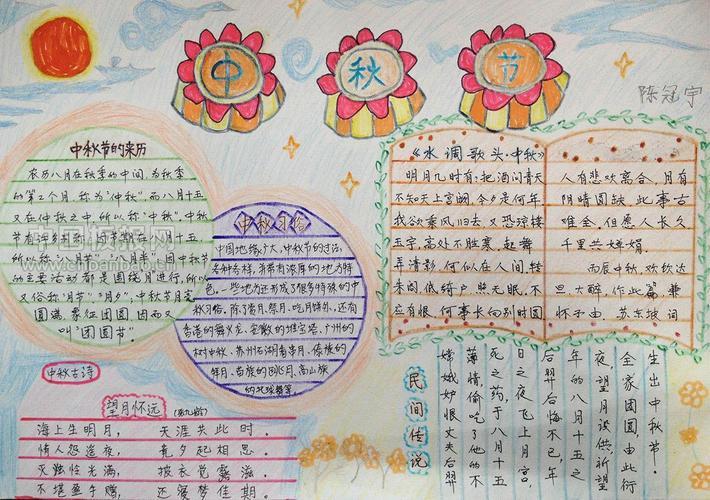 中
秋
节
陈冠宇
中秋节的来历
农历八月在秋季的中间,为秋季
的第2个月,称为"仲秋",而八月十五
又在仲秋之中,所以称"中秋",中秋
节有许多别称:时节就在八月十五,
所以称"八月节""八月半",因中秋节
的主要活动都是围绕月进行,所以
又俗称"月节""月夕",中秋节月亮
圆满,象征团圆,因而又
叫"团圆节"。
中秋习俗
中国地缘广大,中秋节的过法,
各种各样,并带有浓厚的地方特
色。一些地方还形成了很多特殊的中
秋习俗。除了赏月、祭月、吃月饼外,还有
香港的舞火龙、安徽的堆宝塔、广州的
树中秋、苏州石湖看串月、傣族的
拜月、苗族的跳月、高山族
的托球舞等
《水调歌头·中秋》
明月几时有?把酒问青天
不知天上宫阙,今夕是何年
我欲乘风归去,又恐琼楼
玉宇,高处不胜寒,起舞
弄清影,何似在人间,转
朱阁,低绮户,照无眠,不
应有恨,何事长向别时圆
人有悲欢离合,月有
阴晴圆缺,此事古
难全,但愿人长久
千里共婵娟。
丙辰中秋,欢饮达
旦大醉,作此篇,兼
怀子由. 苏东坡词
中秋古诗
望月怀远 (张九龄)
海上生明月, 天涯共此时.
情人怨遥夜, 竟夕起相思.
灭烛怜光满, 披衣觉露滋.
不堪盈手赠, 还寝梦佳期.
民间传说
嫦娥妒恨丈夫后羿
薄情偷吃了他的不
死之药,于八月十五
日之夜飞上月宫,
后羿后悔不已,年
年的八月十五之
夜,望月误供,祈望
全家团圆,由此衍
生出中秋节。